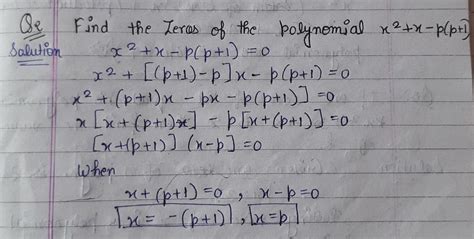 Qs Find the Zeros of the polynomial x²+x-p(p+1)
Solution x²+x-p(p+1)=0
x²+[(p+1)-p]x-p(p+1)=0
x²+(p+1)x-px-p(p+1)]=0
x[x+(p+1)x]-p[x+(p+1)]=0
[x+(p+1)](x-p)=0
When
x+(p+1)=0, x-p=0
x=-(p+1), x=p